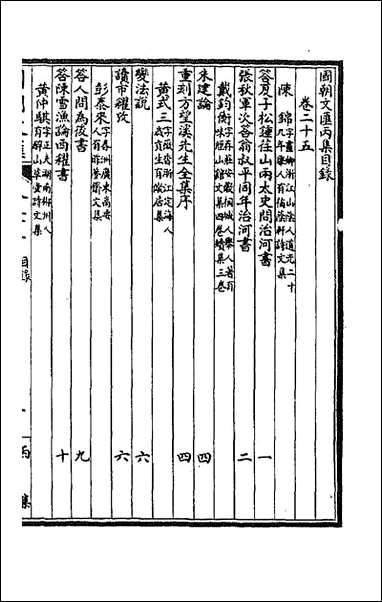 國朝文匯丙集目錄
卷二十五
陳錦 字晝卿浙江山陰人道光二十
九年舉人有橘蔭軒詩文集
答夏子松鍾佳山兩太史問治河書 一
張秋軍次答翁叔平同年治河書 二
戴鈞衡 字存莊安徽桐城人舉人著有
味經山館文集四卷續集三卷
朱建論 四
重刻方望溪先生全集序 四
黃式三 字薇香浙江定海人
歲貢生有儆居集
變法說 六
讀市糴攷 六
彭泰來 字春洲廣東高要
人有昨夢齋文集
答人問為後書 九
答陳雪漁論西糴書 十
黃仲騏 字正夫湖南郴州人
有辟山草堂詩文集
目錄
丙集